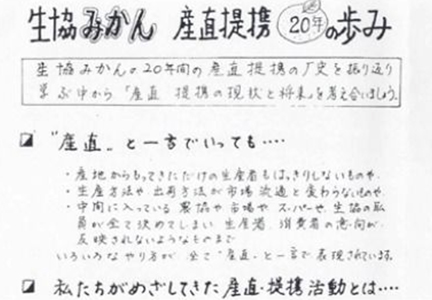 生協みかん 産直提携 20年の歩み
生協みかんの20年間の産直提携の歴史を振り返り
学ぶ中から「産直 提携の現状と将来」を考え合いましょう。
"産直"と一言でいっても‥‥
・産地からもってきただけの生産者もはっきりしないものや、
・生産方法や、出荷方法が市場流通と変わらないものや、
・中間に入っている農協や市場やスーパーや、生協の職
員が全て決めてしまい 生産者、消費者の意向が、
反映されないようなものまで
いろいろなやり方が、全て"産直"と一言で表現されています。
私たちがめざしてきた産直・提携活動とは‥‥